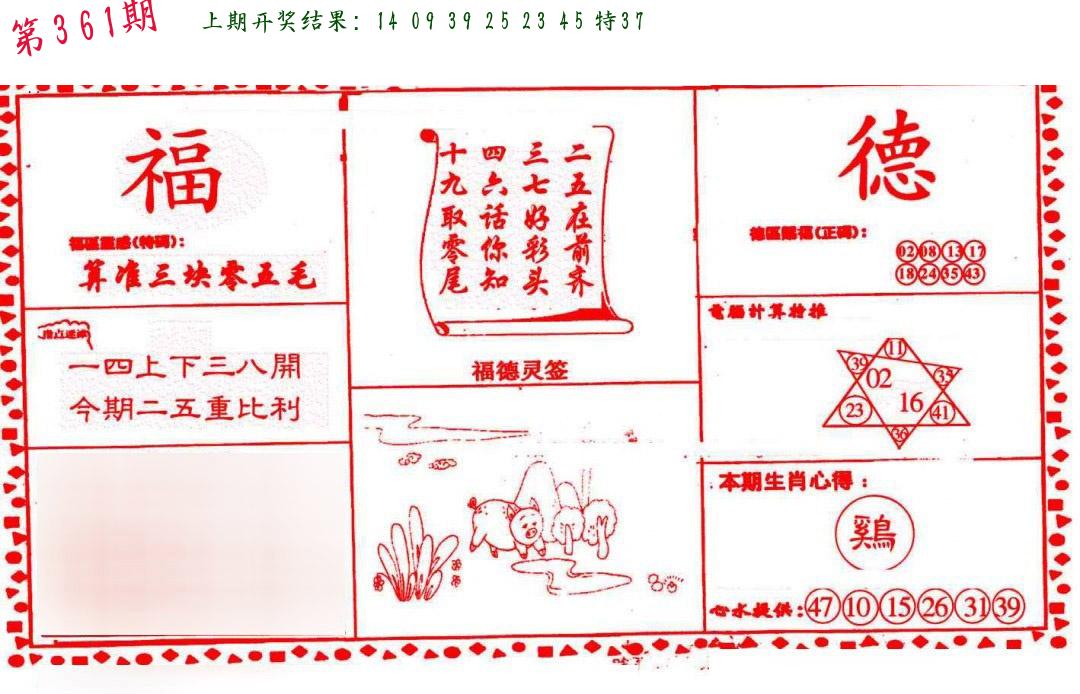 第361期
上期开奖结果: 14 09 39 25 23 45 特37
福
福區靈感(特碼):
算准三块零五毛
一四上下三八開
今期二五重比利
二五在前齐
三七好彩头
四六话你知
十九取零尾
福德灵签
德
德區賜福(正碼):
02 08 13 17
18 24 35 43
電腦計算特推
11
39 02 35
23 16 41
36
本期生肖心得:
鷄
心水提供: 47 10 15 26 31 39